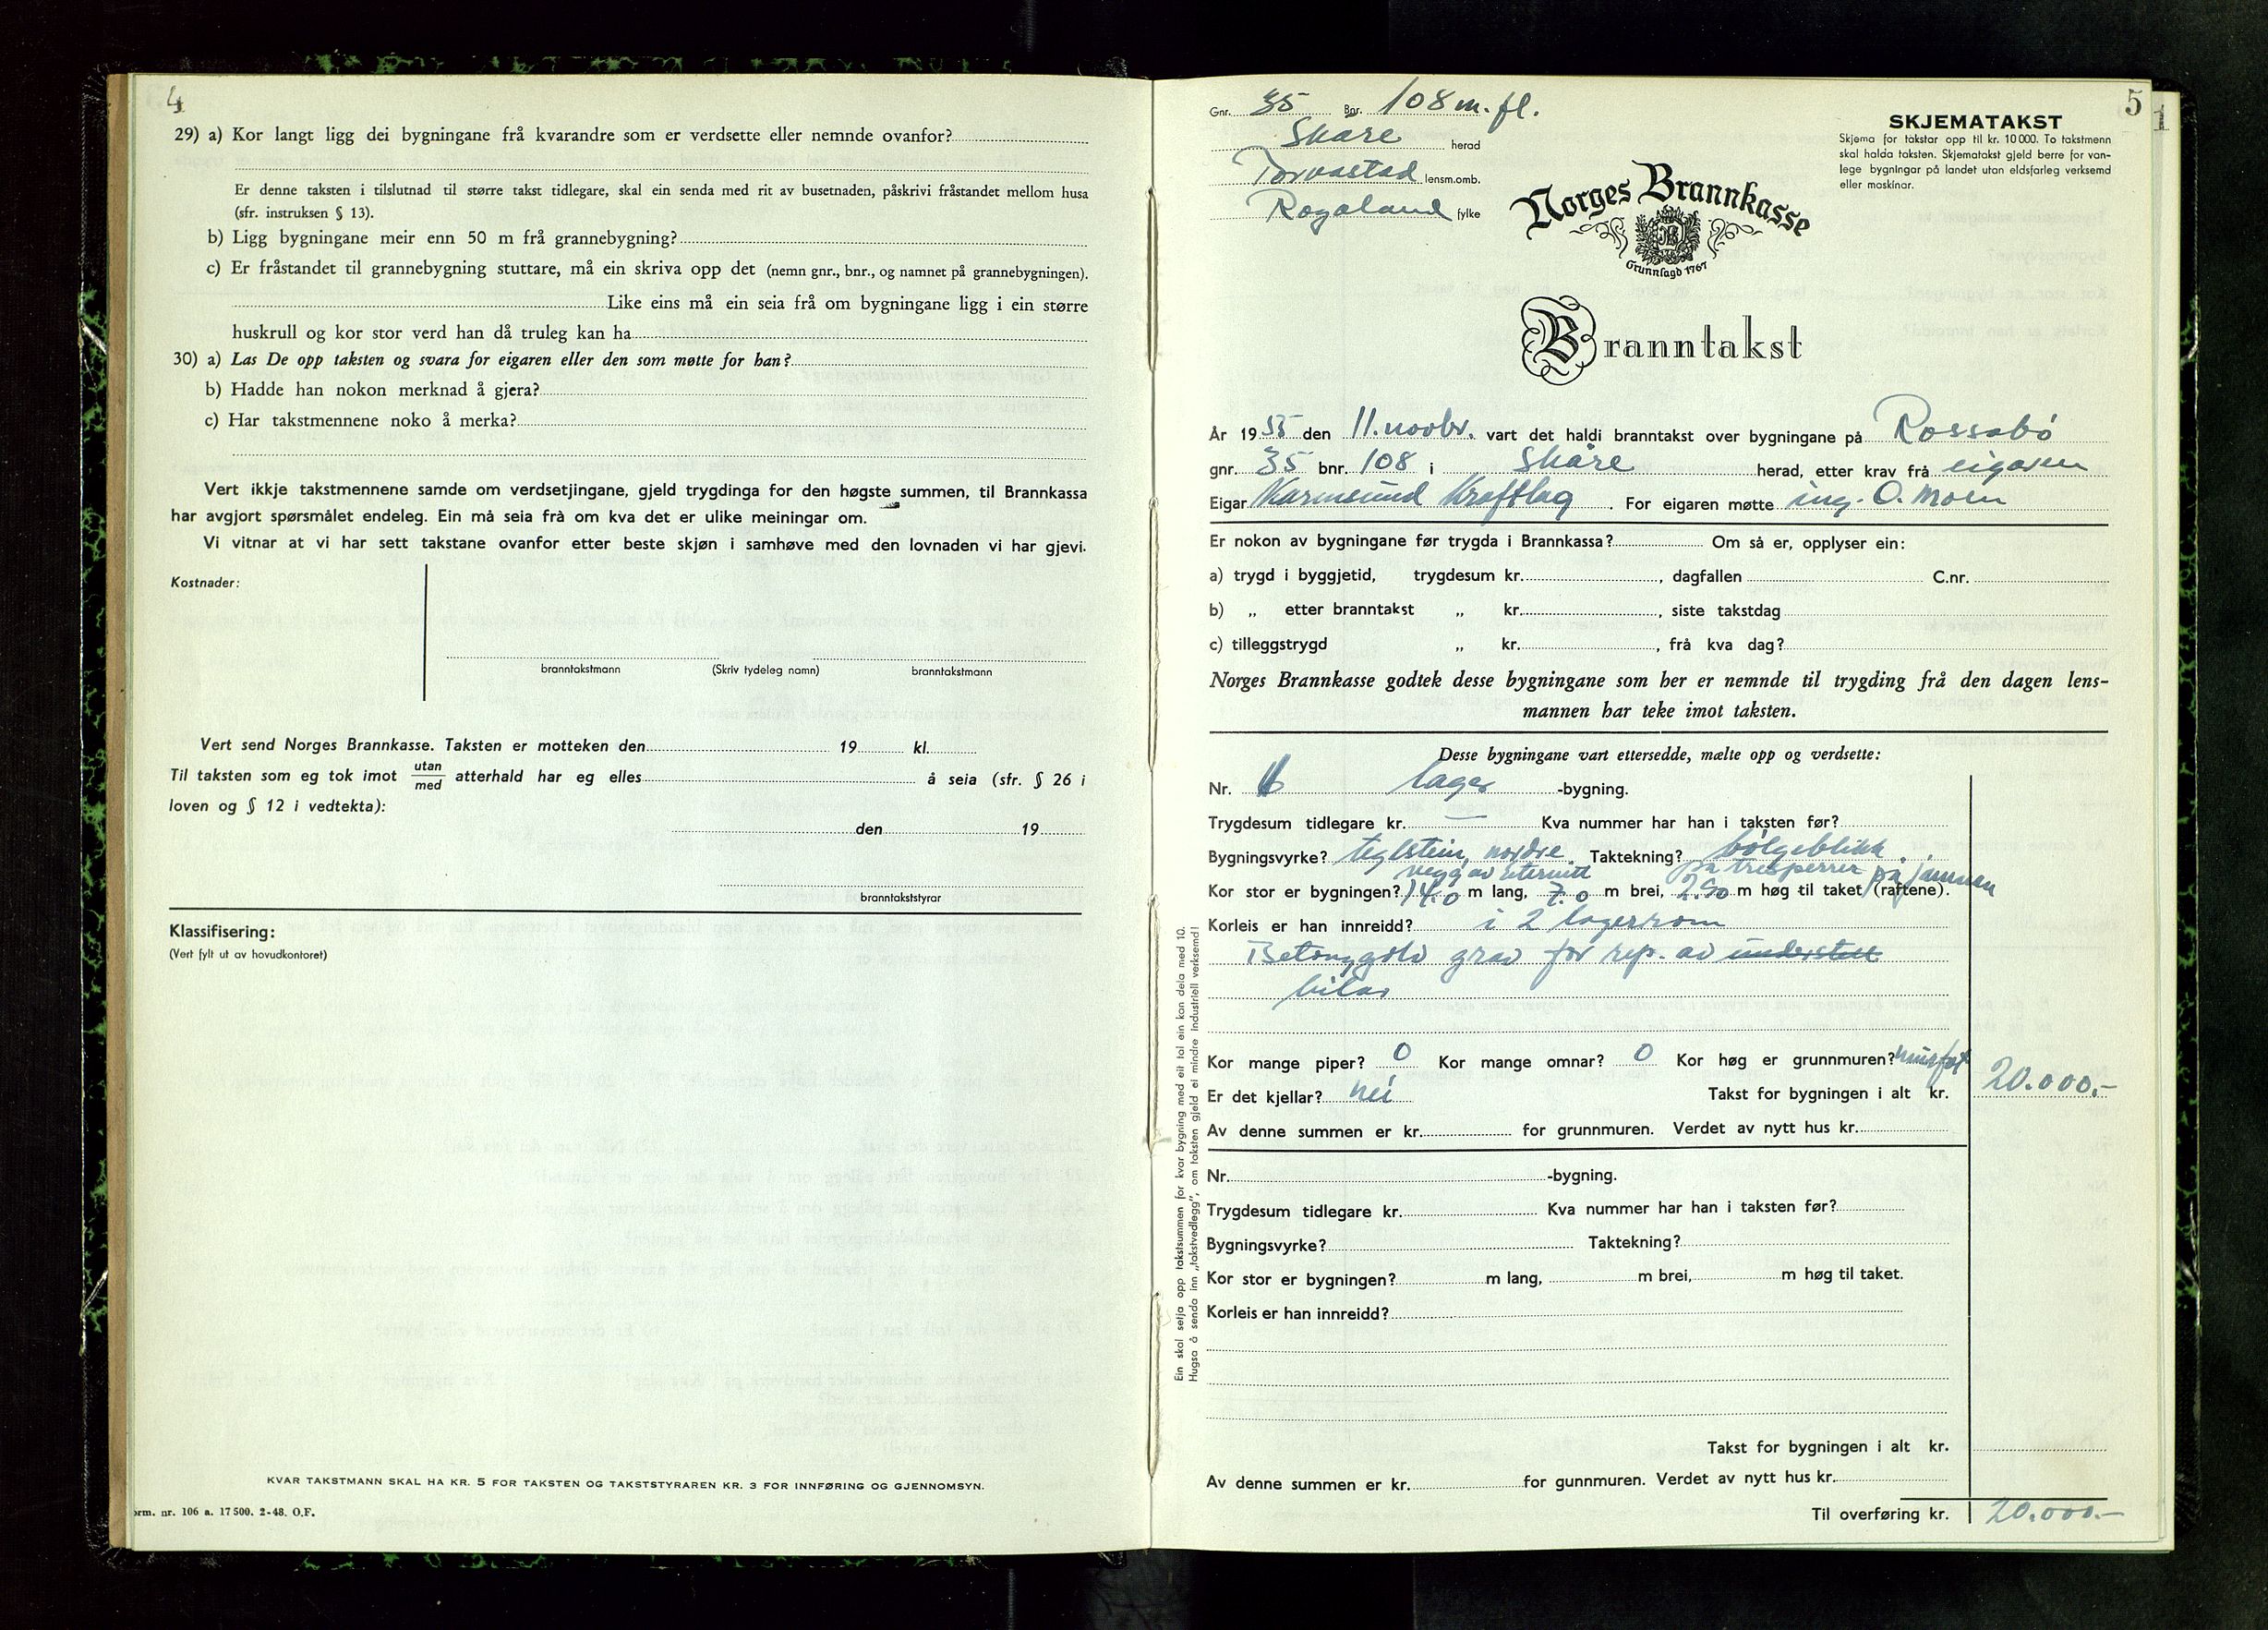 4
29) a) Kor langt ligg dei bygningane frå kvarandre som er verdsette eller nemnde ovanfor?
Er denne taksten i tilslutnad til større takst tidlegare, skal ein senda med rit av busetnaden, påskrivi fråstandet mellom husa
(sfr. instruksen § 13).
b) Ligg bygningane meir enn 50 m frå grannebygning?
c) Er fråstandet til grannebygning stuttare, må ein skriva opp det (nemn gnr., bnr., og namnet på grannebygningen).
Like eins må ein seia frå om bygningane ligg i ein større
huskrull og kor stor verd han då truleg kan ha
30) a) Las De opp taksten og svara for eigaren eller den som møtte for han?
b) Hadde han nokon merknad å gjera?
c) Har takstmennene noko å merka?
Vert ikkje takstmennene samde om verdsetjingane, gjeld trygdinga for den høgste summen, til Brannkassa
har avgjort spørsmålet endeleg. Ein må seia frå om kva det er ulike meiningar om.
Vi vitnar at vi har sett takstane ovanfor etter beste skjøn i samhøve med den lovnaden vi har gjevi.
Kostnader:
branntakstmann (Skriv tydeleg namn) branntakstmann
Vert send Norges Brannkasse. Taksten er motteken den 19 kl.
Til taksten som eg tok imot utan/med atterhald har eg elles å seia (sfr. § 26 i
loven og § 12 i vedtekta):
den 19
branntakststyrar
Klassifisering:
(Vert fylt ut av hovudkontoret)
KVAR TAKSTMANN SKAL HA KR. 5 FOR TAKSTEN OG TAKSTSTYRAREN KR. 3 FOR INNFØRING OG GJENNOMSYN.
orm. nr. 106 a. 17500. 2-48. O.F.
5
1
Gnr. 35 Bnr. 108 m. fl.
Skåre herad
Torvastad lensm.omb.
Rogaland fylke
SKJEMATAKST
Skjema for takstar opp til kr. 10 000. To takstmenn
skal halda taksten. Skjematakst gjeld berre for van-
lege bygningar på landet utan eldsfarleg verksemd
eller maskinar.
Norges Brannkasse
Grunnlagd 1767
Branntakst
År 1955 den 11. novbr. vart det haldi branntakst over bygningane på Rossabö
gnr. 35 bnr. 108 i Skåre herad, etter krav frå eigaren
Eigar Karmsund Kraftlag. For eigaren møtte ing. O. Moen
Er nokon av bygningane før trygda i Brannkassa? Om så er, opplyser ein:
a) trygd i byggjetid, trygdesum kr. , dagfallen C.nr.
b) „ etter branntakst „ kr. , siste takstdag
c) tilleggstrygd „ kr. , frå kva dag?
Norges Brannkasse godtek desse bygningane som her er nemnde til trygding frå den dagen lens-
mannen har teke imot taksten.
Desse bygningane vart ettersedde, mælte opp og verdsette:
Nr. lager -bygning.
Trygdesum tidlegare kr. — Kva nummer har han i taksten før?
Bygningsvyrke? teglstein, nordre Taktekning? bølgeblikk
vegg av eternitt på tresperrer på jamnan
Kor stor er bygningen? 14.0 m lang, 7.0 m brei, 2.90 m høg til taket (raftene).
Korleis er han innreidd? i 2 lagerrom
Betonggolv grav for rep. av understell
bilar
Kor mange piper? 0 Kor mange omnar? 0 Kor høg er grunnmuren?
Er det kjellar? nei Takst for bygningen i alt kr. 20.000.-
Av denne summen er kr. for grunnmuren. Verdet av nytt hus kr.
Nr. -bygning.
Trygdesum tidlegare kr. Kva nummer har han i taksten før?
Bygningsvyrke? Taktekning?
Kor stor er bygningen? m lang, m brei, m høg til taket.
Korleis er han innreidd?
Takst for bygningen i alt kr.
Av denne summen er kr. for gunnmuren. Verdet av nytt hus kr.
Til overføring kr. 20.000.-
Ein skal setja opp takstsummen for kvar bygning med eit tal ein kan dela med 10.
Hugsa å senda inn „takstvedlegg", om taksten gjeld ei mindre industriell verksemd!